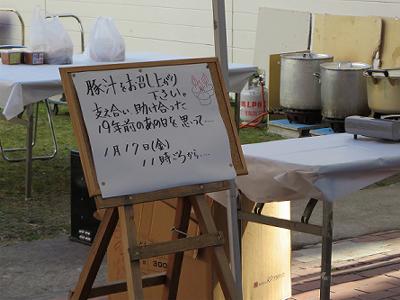 豚汁をお召し上がり
下さい。
支え合い助け合った
19年前のあの日を思って...
1月17日(金)
11時ごろから...
300